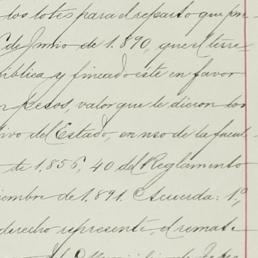 los lotes para el reparto que por
de Junio de 1.890, que el terre
ública y fincado éste en favor
pesos, valor que le dieron los
tivo del Estado, en uso de la facul
de 1.856, 40 del Reglamento
iembre de 1.891. Acuerda: 1º,
derecho represente, el remate